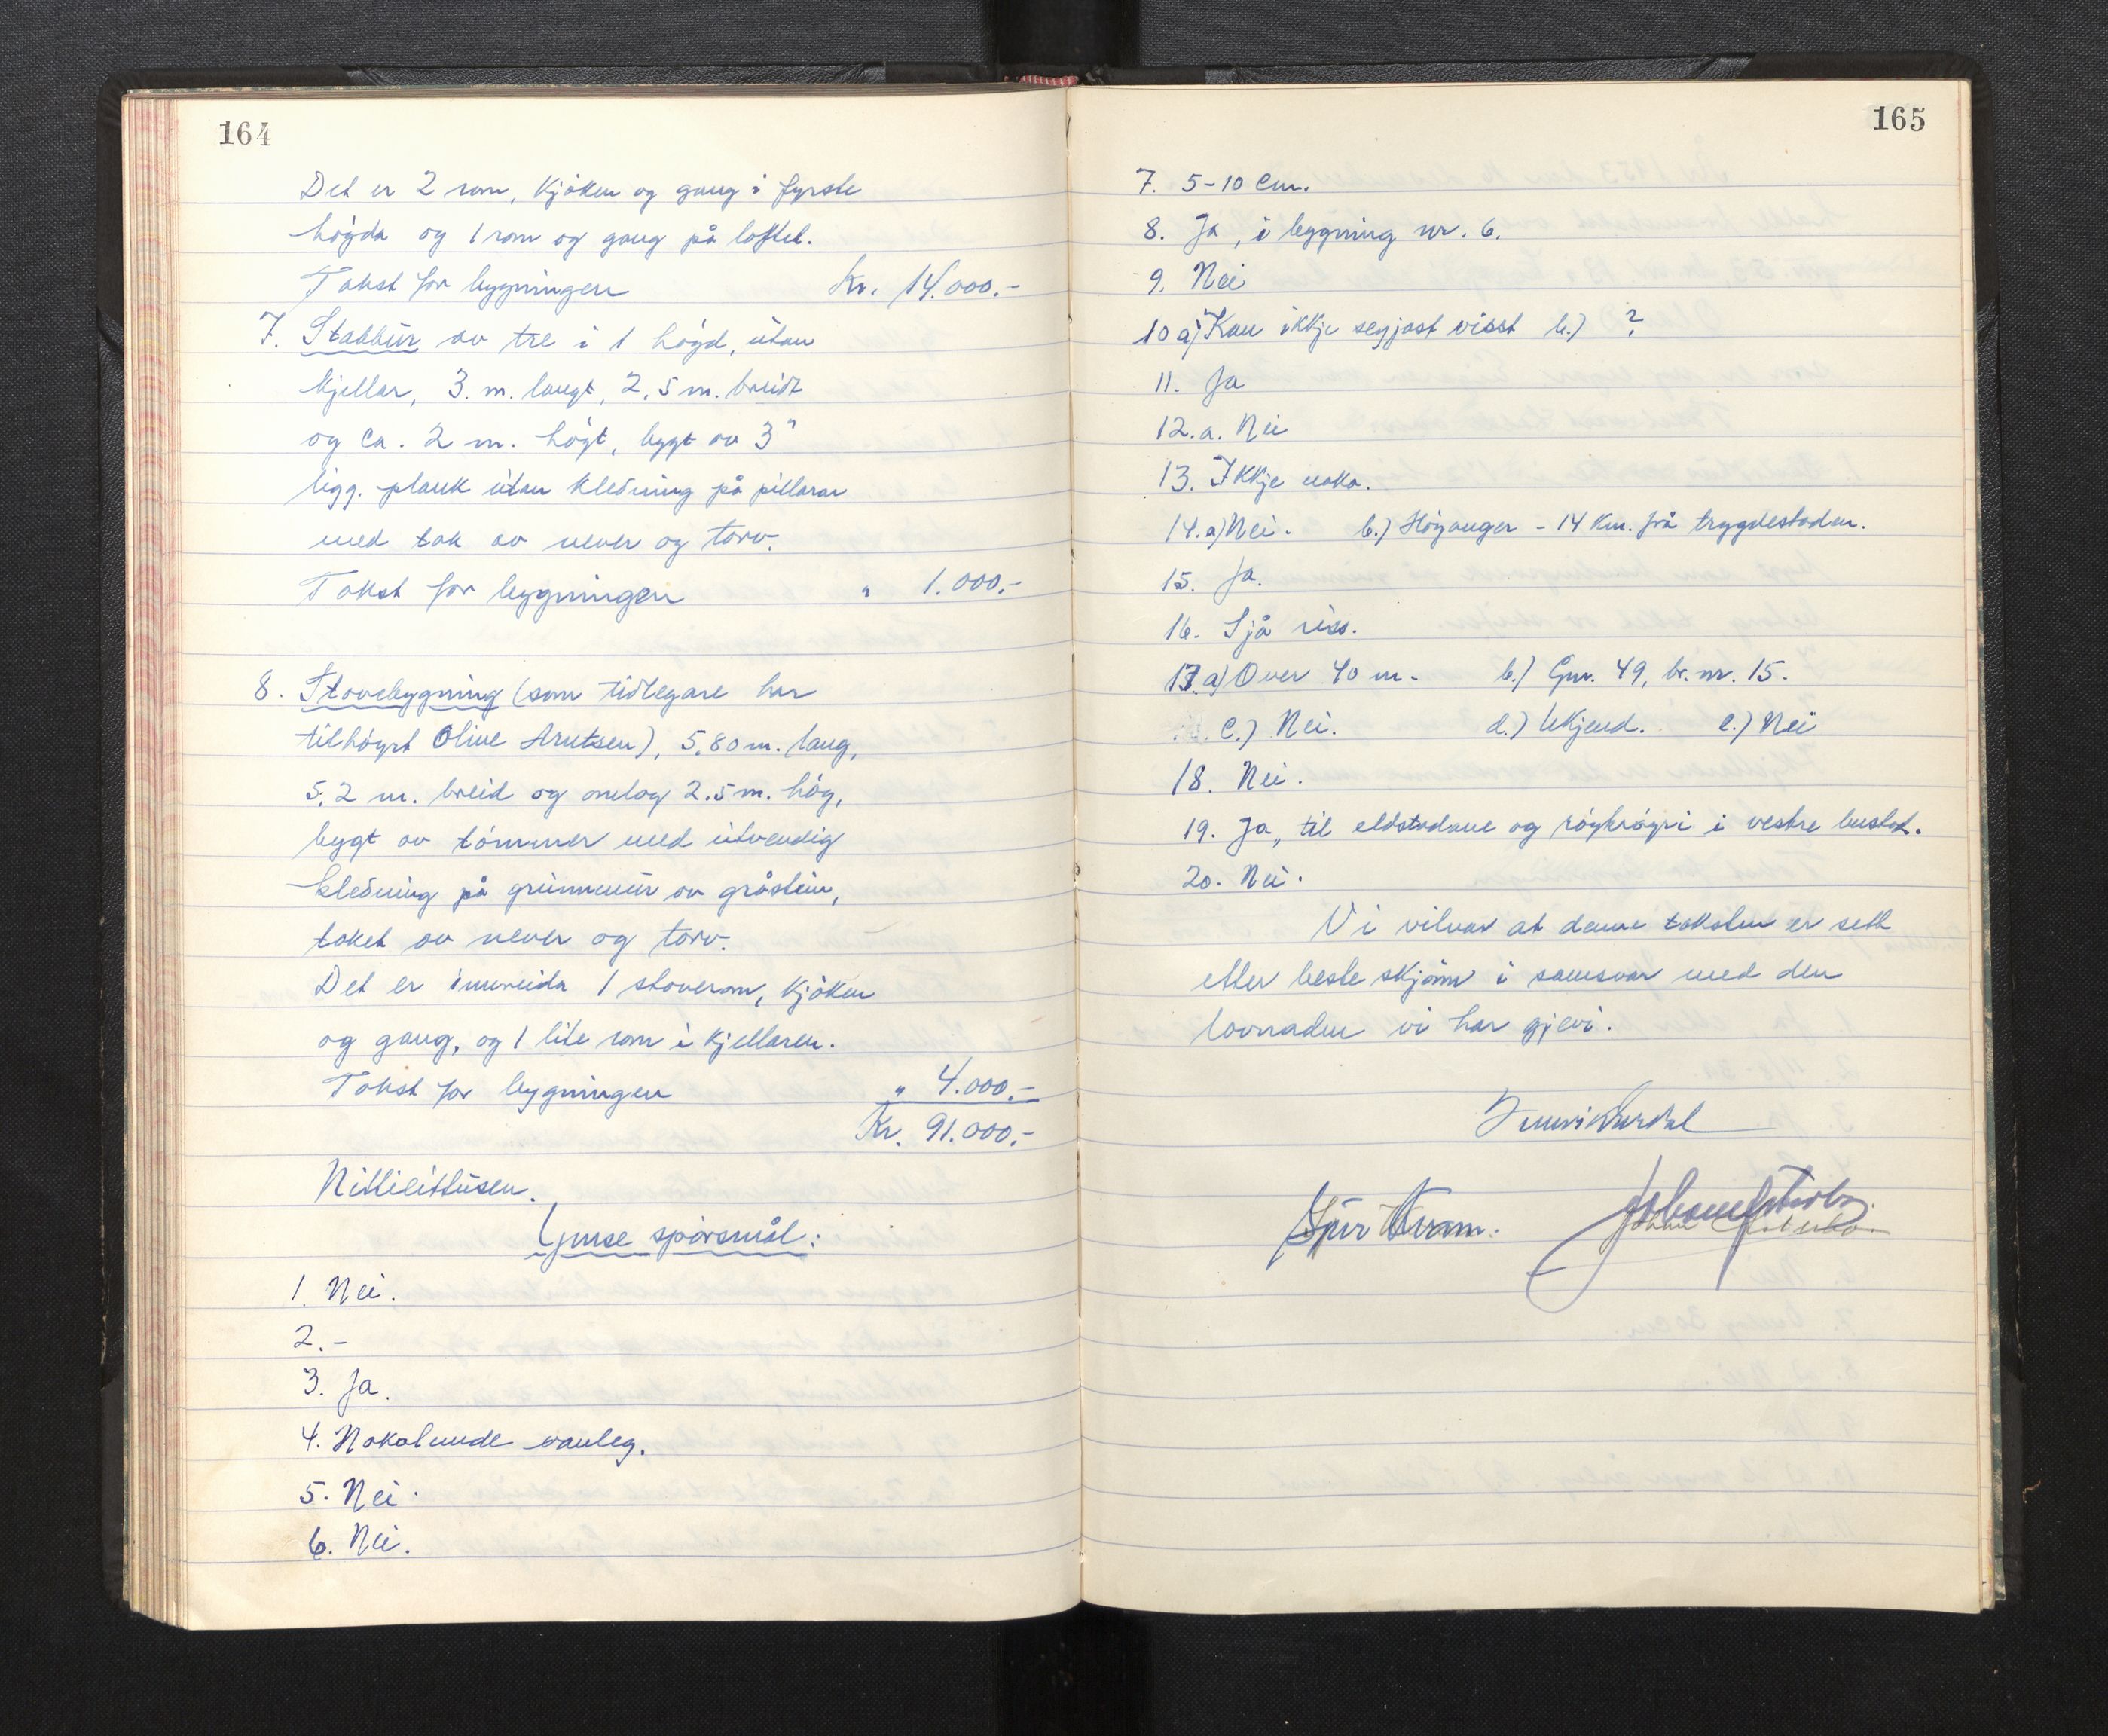 164
Det er 2 rom, kjøken og gang i fyrste
høgda og 1 rom og gang på loftet.
Takst for bygningen Kr. 14.000.-
7. Stabbur av tre i 1 høgd, utan
kjellar, 3 m. langt, 2,5 m. breidt
og ca. 2 m. høgt, bygt av 3"
ligg. plank utan kledning på pillarar
med tak av never og torv.
Takst for bygningen " 1.000.-
8. Stovebygning (som tidlegare har
tilhøyrt Oline Arntsen), 5,80 m. lang,
5,2 m. breid og omlag 2.5 m. høg,
bygt av tømmer med utvendig
kledning på grunnmur av gråstein,
taket av never og torv.
Det er innreida 1 stoverom, kjøken
og gang, og 1 lite rom i kjellaren.
Takst for bygningen " 4.000.-
Kr. 91.000.-
Nittieittusen.
Ymse spørsmål:
1. Nei.
2. -
3. Ja.
4. Nokolunde vanleg.
5. Nei.
6. Nei.
165
7. 5-10 cm.
8. Ja, i bygning nr. 6.
9. Nei
10 a) Kan ikkje segjast visst b.) ?
11. Ja
12.a. Nei
13. Ikkje noko.
14.a) Nei. b.) Høyanger - 14 km. frå trygdestaden.
15. Ja.
16. Sjå riss.
17.a) Over 40 m. b.) Gnr. 49, br. nr. 15.
c.) Nei. d.) Ukjend. e.) Nei
18. Nei.
19. Ja, til eldstadane og røykrøyri i vestre bustad.
20. Nei.
Vi vitnar at denne taksten er sett
etter beste skjønn i samsvar med den
lovnaden vi har gjevi.